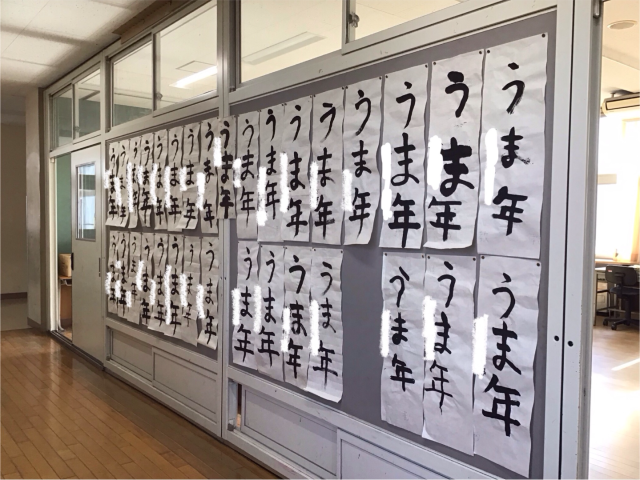 うま年
うま年
うま年
うま年
うま年
うま年
うま年
うま年
うま年
うま年
うま年
うま年
うま年
うま年
うま年
うま年
うま年
うま年
うま年
うま年
うま年
うま年
うま年
うま年
うま年
うま年
うま年
うま年
うま年
うま年
うま年
うま年